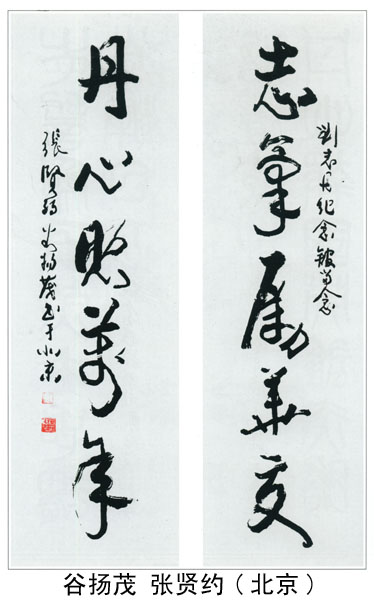 劉志丹纪念馆留念
志氣励華夏
丹心照萬年
張賢約谷揚茂书于北京
谷扬茂 张贤约（北京）